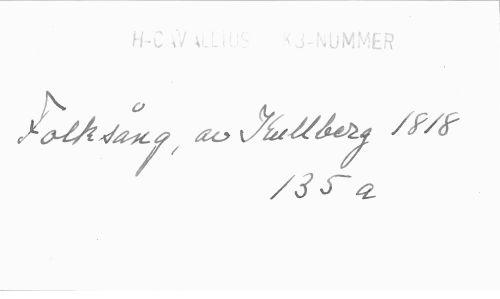 H-CAVALLIUS KB-NUMMER
Folksång, av Kullberg 1818
135 a